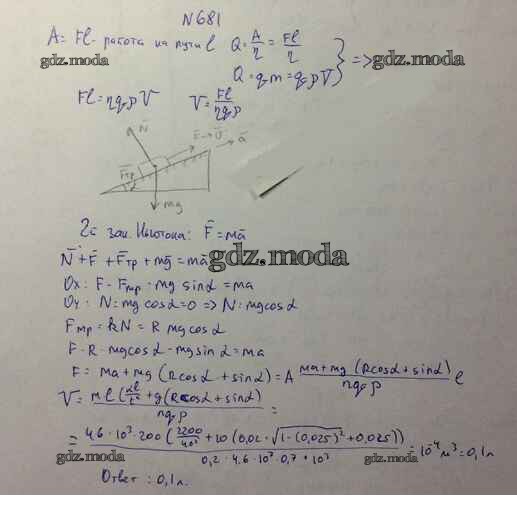 N681
A = Fl - работа на пути l Q = A/η = Fl/η
gdz.moda
Q = qm = qρV } => gdz.moda
Fl = ηqρV V = Fl/ηqρ
N F a
Fтр
mg
2й зак. Ньютона: F = ma
N + F + Fтр + mg = ma gdz.moda
Ox: F - Fтр - mg sinα = ma
Oy: N - mg cosα = 0 => N = mg cosα
Fтр = kN = k mg cosα
F - k · mg cosα - mg sinα = ma
F = ma + mg (k cosα + sinα) = A ma + mg (k cosα + sinα)/ηqρ l
V = ml (2l/t² + g(k cosα + sinα))/ηqρ =
= 4,6 · 10³ · 200 (2200/40² + 10 (0,02 · √1-(0,025)² + 0,025))/0,2 · 4,6 · 10⁷ · 0,7 · 10³ = 10⁻⁴ м³ = 0,1 л
gdz.moda gdz.moda
Ответ: 0,1 л.